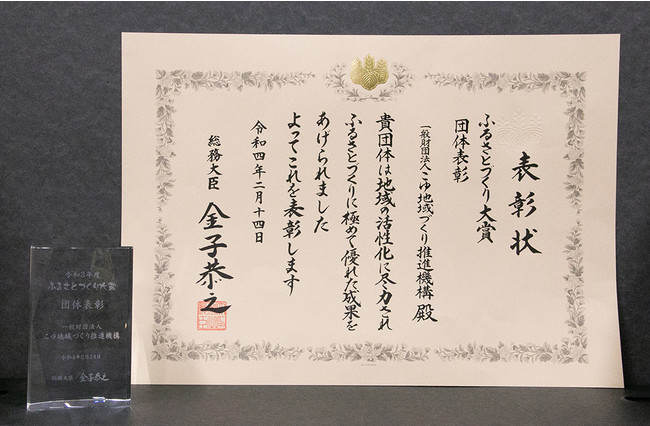 表彰状
ふるさとづくり大賞
団体表彰
一般財団法人こゆ地域づくり推進機構 殿
貴団体は地域の活性化に尽力され
ふるさとづくりに極めて優れた成果を
あげられました
よってこれを表彰します
令和四年二月十四日
総務大臣 金子恭之
令和3年度
ふるさとづくり大賞
団体表彰
一般財団法人
こゆ地域づくり推進機構
令和4年2月14日
総務大臣 金子恭之